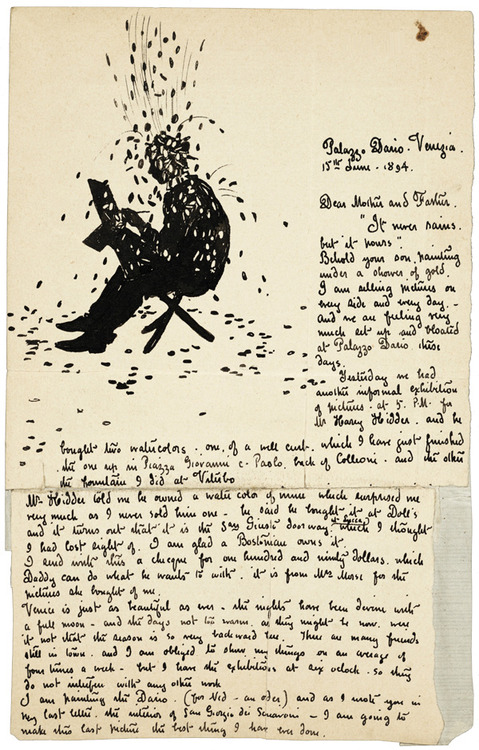 Palazzo Dario. Venezia.
15th June. 1894.
Dear Mother and Father.
"It never rains.
but it pours".
Behold your son painting
under a shower of gold.
I am selling pictures on
every side and every day. -
and we are feeling very
much set up and bloated
at Palazzo Dario these
days.
Yesterday we had
another informal exhibition
of pictures. at 5. P.M. for
Mr Harry and he
bought two watercolors. one, of a well curb. which I have just finished
the one up in Piazza Giovanni e. Paolo. back of Colleoni. and the other
the fountain I did at Viterbo
Mr. told me he owned a water color of mine which surprised me
very much as I never sold him one - he said he bought it at Doll's
and it turns out that it is the San Giusto doorway at Lucca which I thought
I had lost sight of. I am glad a Bostonian owns it.
I send with this a cheque for one hundred and ninety dollars. which
Daddy can do what he wants to with. it is from Mrs Morse for the
pictures she bought of me.
Venice is just as beautiful as ever - the nights have been devine with
a full moon - and the days not too warm. as they might be now. were
it not that the season is so very backward here. There are many friends
still in town. and I am obliged to show my things on an average of
four times a week - but I have the exhibitions at six oclock. so they
do not interfere with any other work
I am painting the Dario. (for Ned - an oder) and as I wrote you in
my last letter. the interior of San Giorgio dei - I am going to
make this last picture the best thing I have ever done.